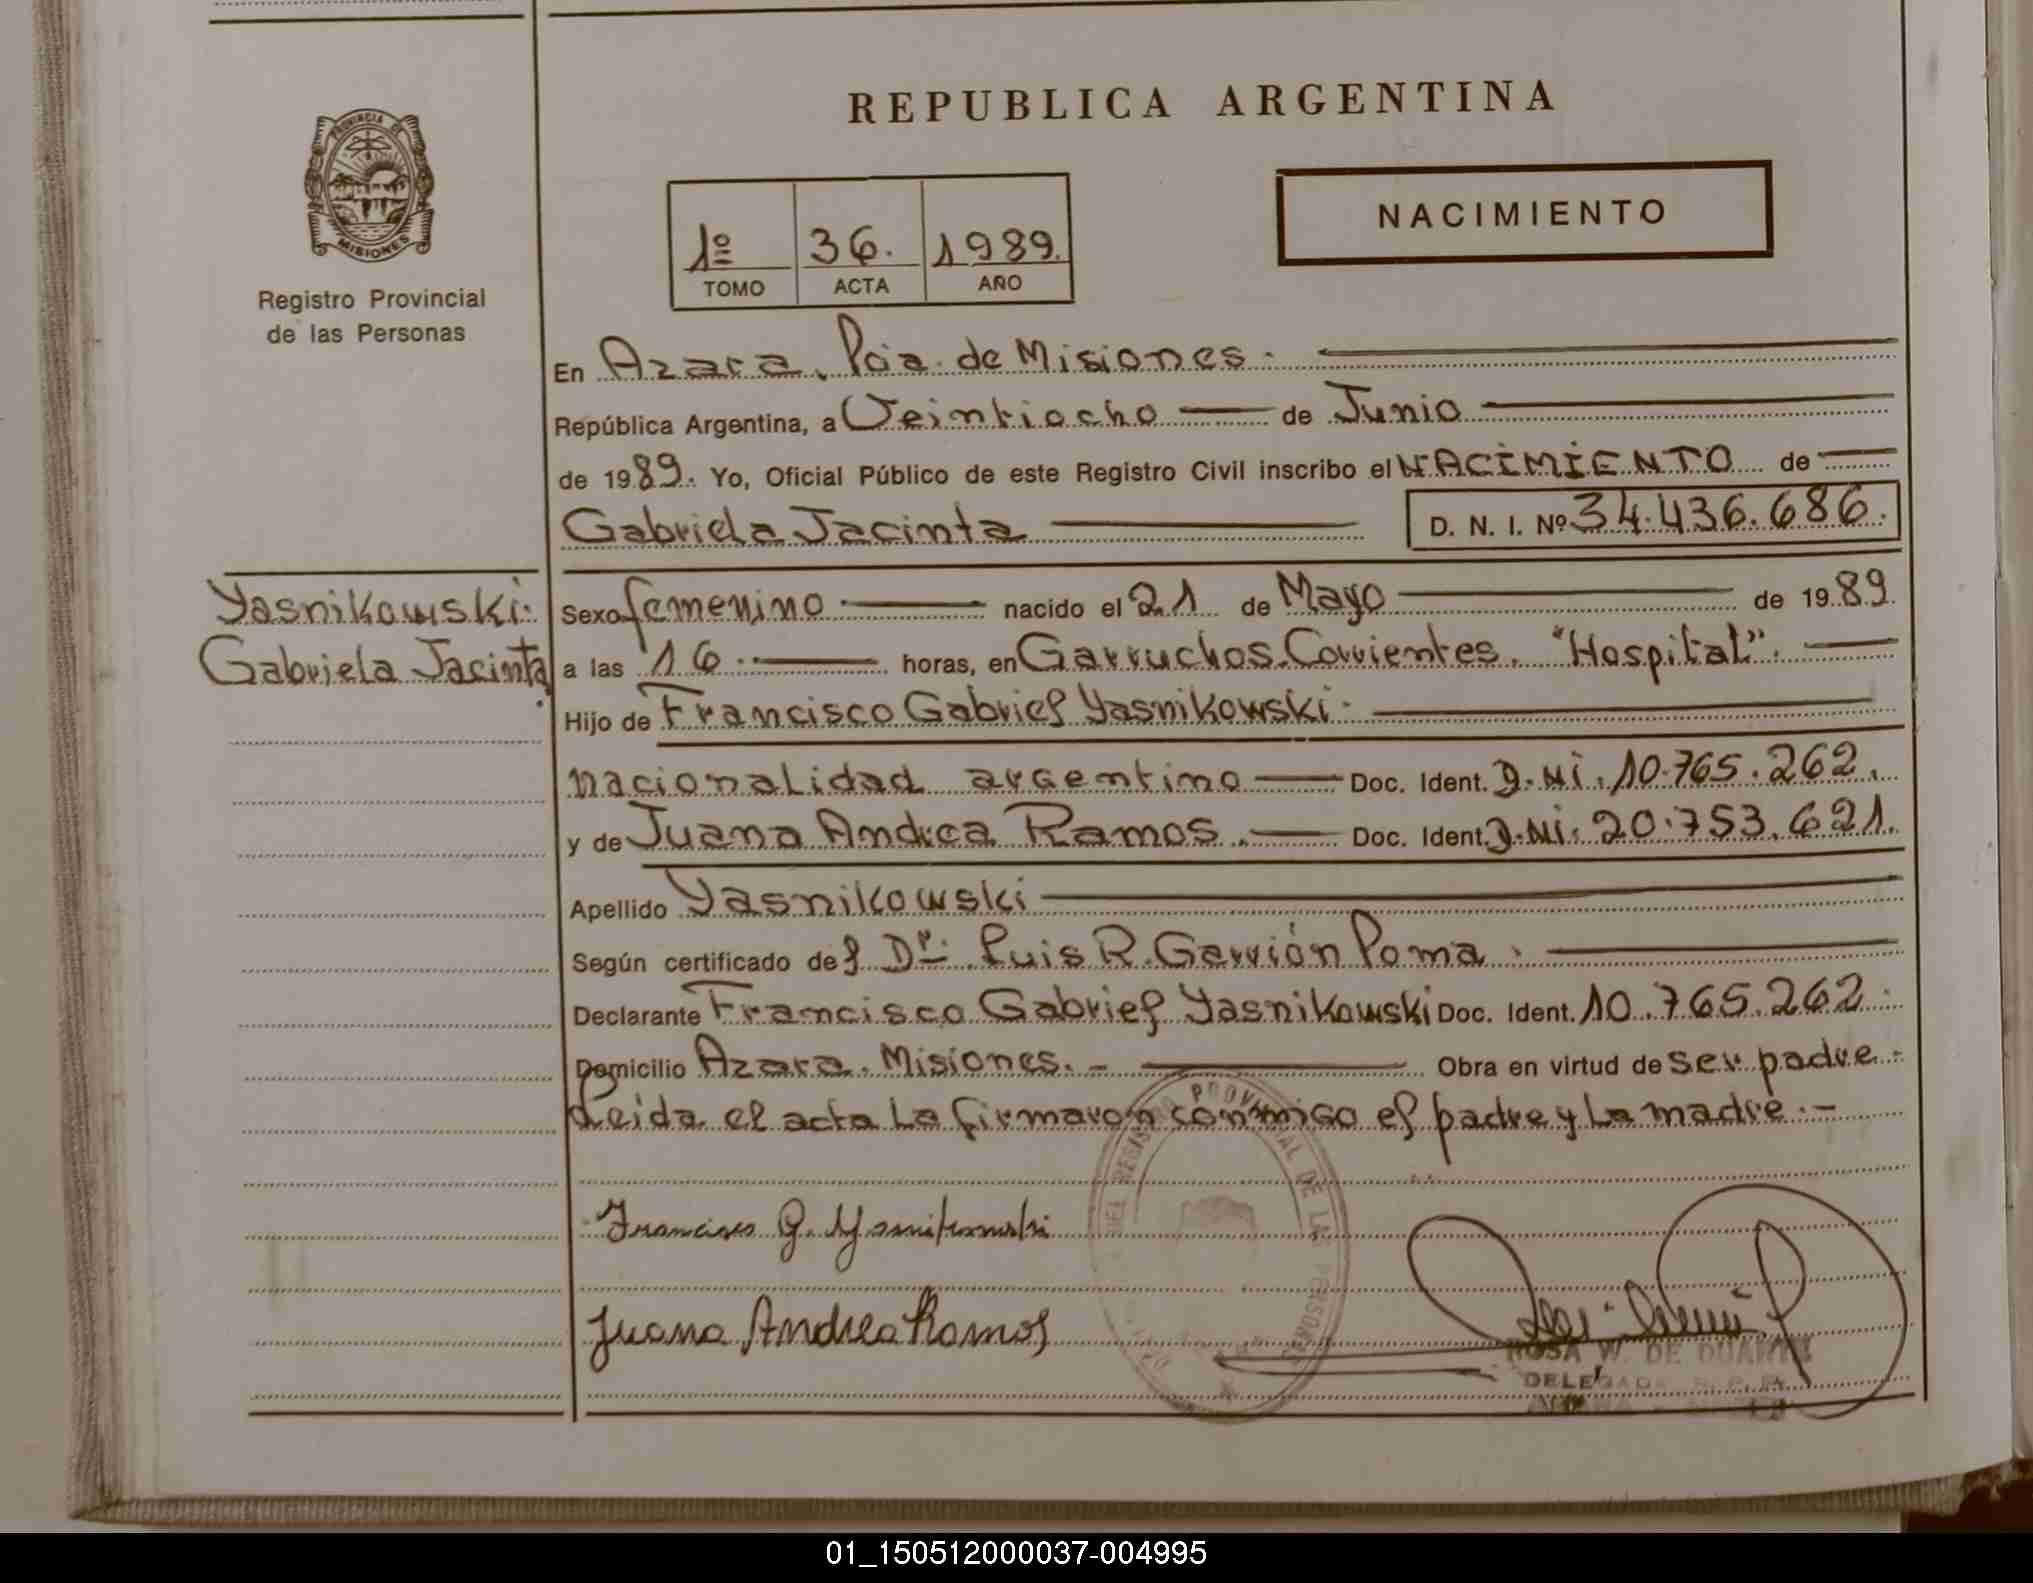 REPUBLICA ARGENTINA
PROVINCIA DE
MISIONES
Registro Provincial
de las Personas
1º 36. 1989.
TOMO ACTA AÑO
NACIMIENTO
En Azara, Pcia. de Misiones.
República Argentina, a Veintiocho de Junio
de 1989. Yo, Oficial Público de este Registro Civil inscribo el NACIMIENTO de
Gabriela Jacinta D. N. I. Nº 34.436.686.
Yasnikowski.
Gabriela Jacinta.
Sexo femenino nacido el 21 de Mayo de 1989.
a las 16 horas, en Garruchos. Corrientes. "Hospital".
Hijo de Francisco Gabriel Yasnikowski.
nacionalidad argentino Doc. Ident. D.Ni. 10.765.262.
y de Juana Andrea Ramos. Doc. Ident. D.Ni. 20.753.621.
Apellido Yasnikowski
Según certificado del Dr. Luis R. Garrión Poma.
Declarante Francisco Gabriel Yasnikowski Doc. Ident. 10.765.262.
Domicilio Azara. Misiones.- Obra en virtud de ser padre.-
Leida el acta La firmaron conmigo el padre y La madre.-
REGISTRO PROVINCIAL DE LAS PERSONAS
Francisco G. Yasnikowski
Juana Andrea Ramos
ROSA W. DE DUARTE
DELEGADA R. P. P.
01_150512000037-004995